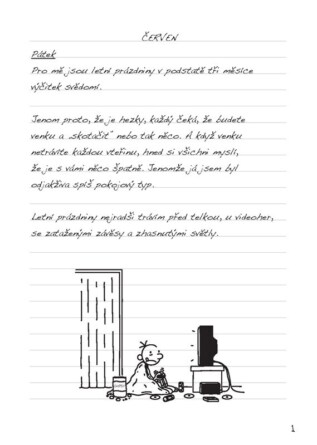 ČERVEN
Pátek
Pro mě jsou letní prázdniny v podstatě tři měsíce
výčitek svědomí.
Jenom proto, že je hezky, každý čeká, že budete
venku a „skotačit" nebo tak něco. A když venku
netrávíte každou vteřinu, hned si všichni myslí,
že je s vámi něco špatně. Jenomže já jsem byl
odjakživa spíš pokojový typ.
Letní prázdniny nejradši trávím před telkou, u videoher,
se zataženými závěsy a zhasnutými světly.
1